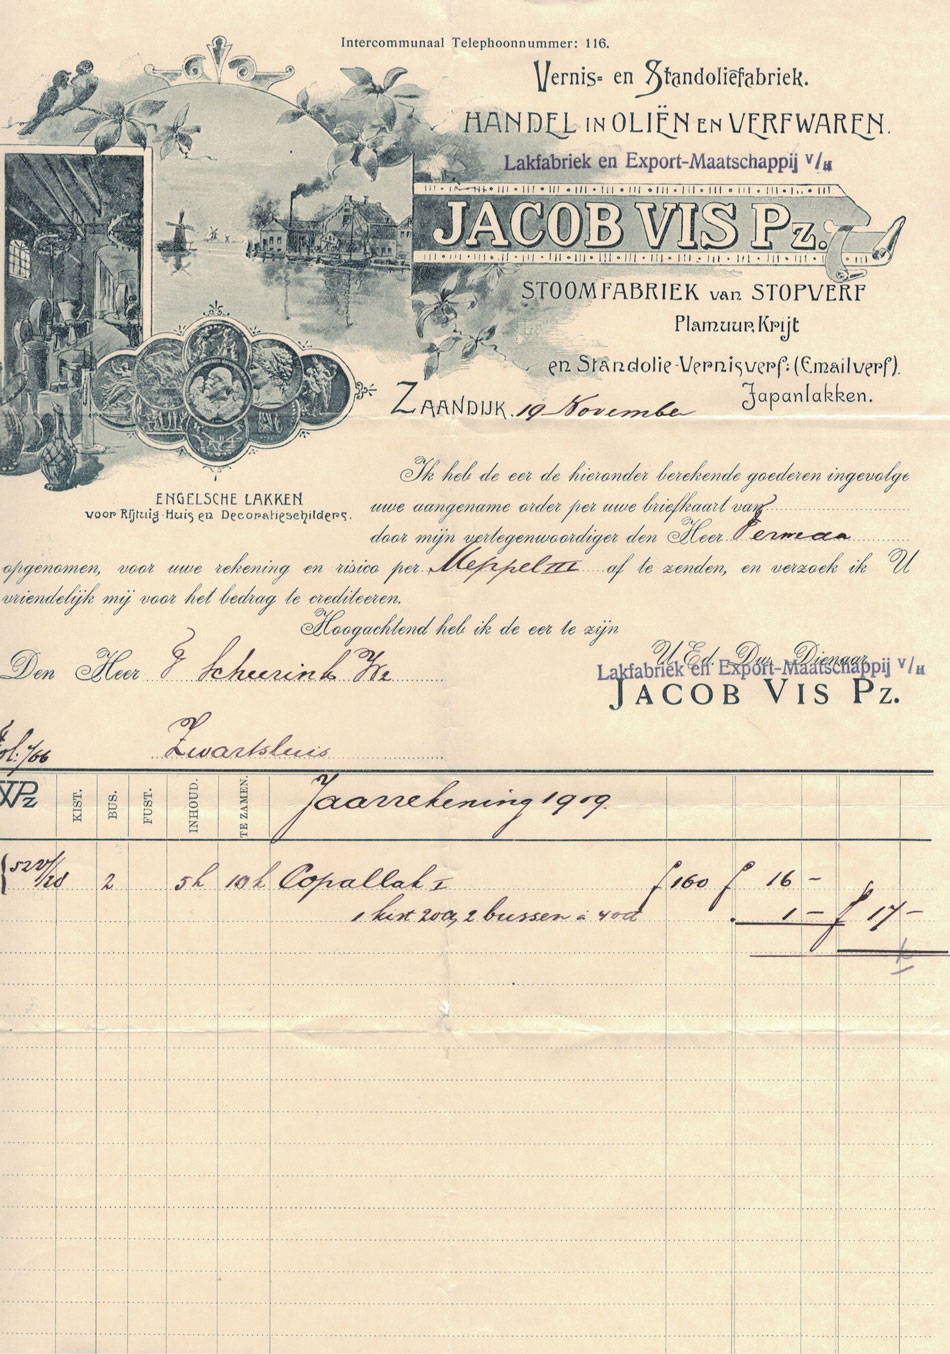 Intercommunaal Telephoonnummer: 116.
Vernis- en Standoliefabriek.
HANDEL IN OLIËN EN VERFWAREN.
Lakfabriek en Export-Maatschappij V/H
JACOB VIS Pz.
STOOMFABRIEK van STOPVERF
Plamuur, Krijt
en Standolie-Vernisverf: (Emailverf).
Japanlakken.
ZAANDIJK. 19 November
ENGELSCHE LAKKEN
voor Rijtuig-Huis en Decoratieschilders.
Ik heb de eer de hieronder berekende goederen ingevolge
uwe aangename order per uwe briefkaart van
door mijn vertegenwoordiger den Heer
opgenomen, voor uwe rekening en risico per Meppel III af te zenden, en verzoek ik U
vriendelijk mij voor het bedrag te crediteeren.
Hoogachtend heb ik de eer te zijn
U Ed. Dw. Dienaar
Den Heer
Lakfabriek en Export-Maatschappij V/H
JACOB VIS Pz.
Zwartsluis
KIST. BUS. FUST. INHOUD. TE ZAMEN. Jaarrekening 1909.
2 5 k 10 k Copallak I f 160 f 16 -
1 kist 20c, 2 bussen à 40c 1 - f 17 -